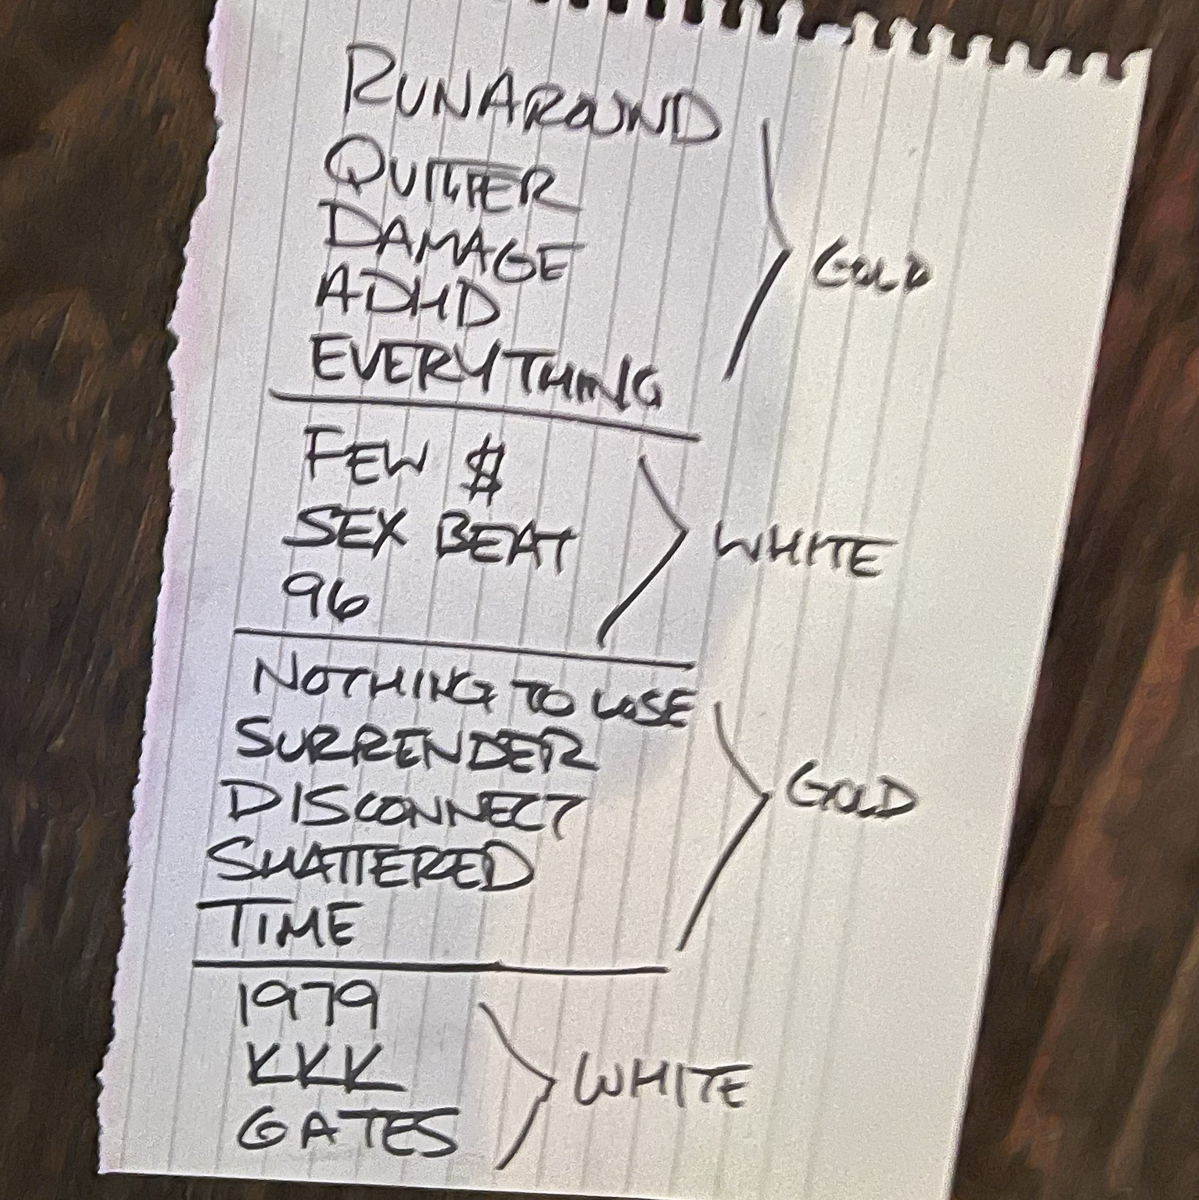 RUNAROUND
QUITTER
DAMAGE
ADHD
EVERYTHING
GOLD
FEW $
SEX BEAT
96
WHITE
NOTHING TO LOSE
SURRENDER
DISCONNECT
SHATTERED
TIME
GOLD
1979
KKK
GATES
WHITE